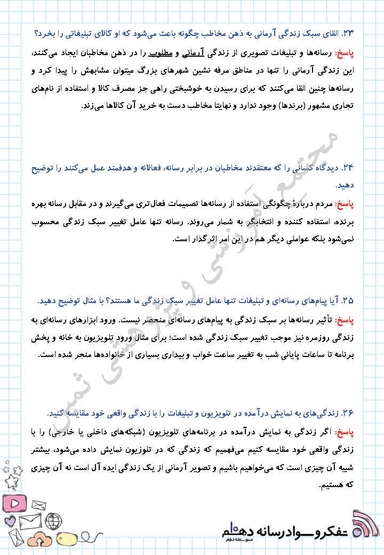 ۲۳. القای سبک زندگی آرمانی به ذهن مخاطب چگونه باعث می‌شود که او کالای تبلیغاتی را بخرد؟
پاسخ: رسانه‌ها و تبلیغات تصویری از زندگی آرمانی و مطلوب را در ذهن مخاطبان ایجاد می‌کنند،
این زندگی آرمانی را تنها در مناطق مرفه نشین شهرهای بزرگ میتوان مشابهش را پیدا کرد و
رسانه‌ها چنین القا می‌کنند که برای رسیدن به خوشبختی راهی جز مصرف کالا و استفاده از نام‌های
تجاری مشهور (برندها) وجود ندارد و نهایتا مخاطب دست به خرید آن کالاها می‌زند.
۲۴. دیدگاه کسانی را که معتقدند مخاطبان در برابر رسانه، فعالانه و هدفمند عمل می‌کنند را توضیح
دهید.
پاسخ: مردم دربارهٔ چگونگی استفاده از رسانه‌ها تصمیمات فعال‌تری می‌گیرند و در مقابل رسانه بهره
برنده، استفاده کننده و انتخابگر به شمار می‌روند. رسانه تنها عامل تغییر سبک زندگی محسوب
نمی‌شود بلکه عواملی دیگر هم در این امر اثرگذار است.
۲۵. آیا پیام‌های رسانه‌ای و تبلیغات تنها عامل تغییر سبک زندگی ما هستند؟ با مثال توضیح دهید.
پاسخ: تأثیر رسانه‌ها بر سبک زندگی به پیام‌های رسانه‌ای منحصر نیست. ورود ابزارهای رسانه‌ای به
زندگی روزمره نیز موجب تغییر سبک زندگی شده است؛ برای مثال ورود تلویزیون به خانه و پخش
برنامه تا ساعات پایانی شب به تغییر ساعت خواب و بیداری بسیاری از خانواده‌ها منجر شده است.
۲۶. زندگی‌های به نمایش درآمده در تلویزیون و تبلیغات را با زندگی واقعی خود مقایسه کنید.
پاسخ: اگر زندگی به نمایش درآمده در برنامه‌های تلویزیون (شبکه‌های داخلی یا خارجی) را با
زندگی واقعی خود مقایسه کنیم می‌فهمیم که زندگی که در تلوزیون نمایش داده می‌شود، بیشتر
شبیه آن چیزی است که می‌خواهیم باشیم و تصویر آرمانی از یک زندگی ایده آل است نه آن چیزی
که هستیم.
مجتمع آموزشی و پژوهشی
تفکر و سواد رسانه دهم
متوسطه دوم